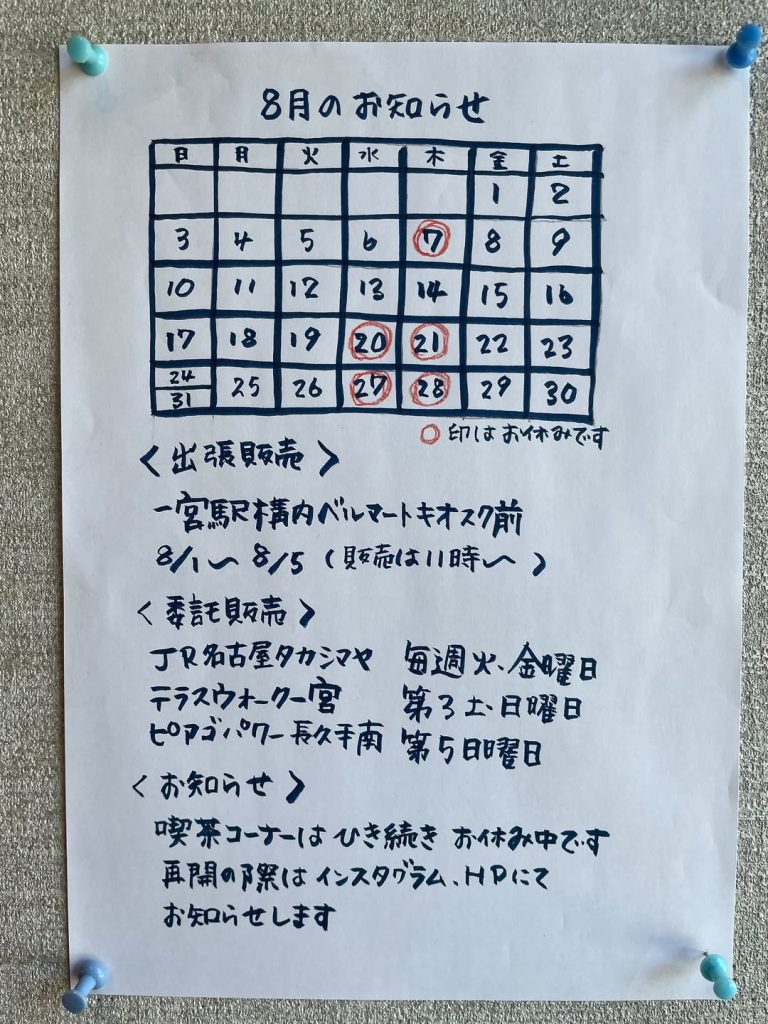 8月のお知らせ
日 月 火 水 木 金 土
1 2
3 4 5 6 7 8 9
10 11 12 13 14 15 16
17 18 19 20 21 22 23
24/31 25 26 27 28 29 30
○印はお休みです
〈出張販売〉
一宮駅構内ベルマートキオスク前
8/1〜8/5(販売は11時〜)
〈委託販売〉
JR名古屋タカシマヤ 毎週火、金曜日
テラスウォーク一宮 第3土・日曜日
ピアゴパワー長久手南 第5日曜日
〈お知らせ〉
喫茶コーナーはひき続きお休み中です
再開の際はインスタグラム、HPにて
お知らせします